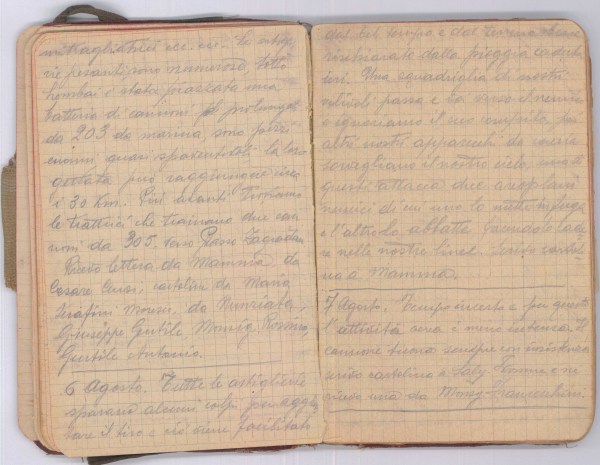 mitragliatrici ecc. ecc. Le artiglie
rie pesanti sono numerose, sotto
è stata piazzata una
batteria di cannoni
da 203 da marina, sono pezzi
enormi quasi spaventosi. la loro
gettata può raggiungere
i 30 Km. Più avanti troviamo
le trattrici che trainano due can
noni da 305, sono
Ricevo lettera da Mamma, da
Cesare cartolina da Maria
Serafini da Nunziata,
Giuseppe Gentile, Monsig.
Gentile Antonio.
6 Agosto. Tutte le artiglierie
sparano alcuni colpi per aggiu
stare il tiro e ciò viene facilitato
dal bel tempo e dal terreno
dalla pioggia caduta
ieri. Una squadriglia di nostri
velivoli passa e va verso il nemico
il suo compito, poi
altri nostri apparecchi da caccia
sorvegliano il nostro cielo, uno di
questi attacca due aeroplani
nemici di cui uno lo mette in fuga
e l'altro lo abbatte facendolo cade
re nelle nostre linee. Scrivo cartoli
na a Mamma.
7 Agosto. Tempo incerto e per questo
l'attività aerea è meno intensa. Il
cannone tuona sempre con insistenza
scrivo cartolina a e ne
ricevo una da Monsig. Franceschini.